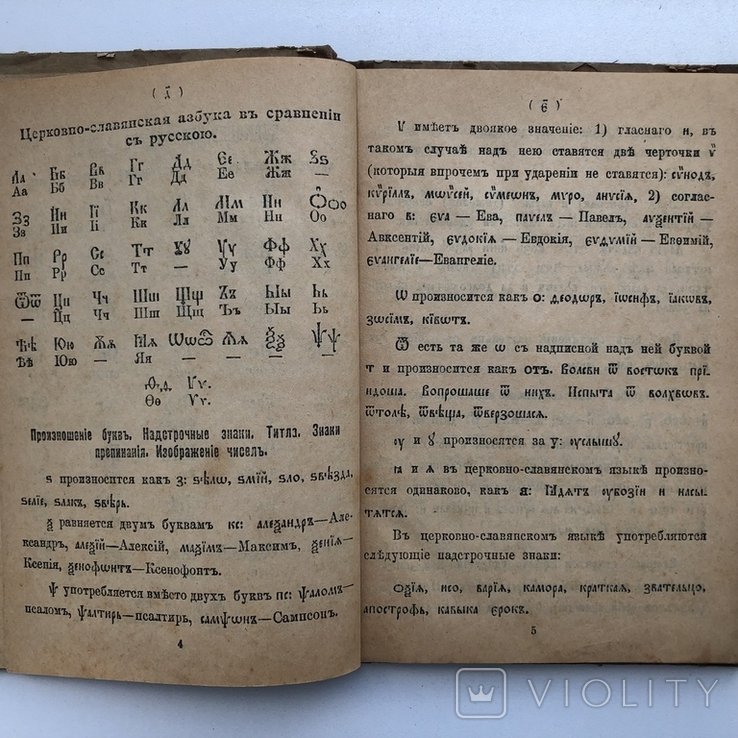 Церковно-славянская азбука въ сравненіи
съ русскою.
Аа Бб Вв Гг Дд Єе Жж Ѕѕ
Аа Бб Вв Гг Дд Ее Жж —
Зз Ии Її Кк Лл Мм Нн Оо
Зз Ии Іі Кк Лл Мм Нн Оо
Пп Рр Сс Тт Ѹꙋ Ѵѵ Фф Хх
Пп Рр Сс Тт — Уу Фф Хх
Ѿѿ Цц Чч Шш Щщ Ъъ Ыы Ьь
— Цц Чч Шш Щщ Ъъ Ыы Ьь
Ѣѣ Юю Ѫѫ Ꙗꙗ Ѡѡ Ѧѧ Ѯѯ Ѱѱ
Ѣѣ Юю — Яя — — — —
Ѳѳ Ѵѵ
Ѳѳ Ѵѵ.
Произношеніе буквъ. Надстрочные знаки. Титла. Знаки
препинанія. Изображеніе чиселъ.
ѕ произносится какъ з: ѕѣлѡ, ѕмїй, ѕло, ѕвѣзда,
ѕелїе, ѕлакъ, ѕвѣрь.
ѯ равняется двумъ буквамъ кс: алеѯандръ—Але-
ксандръ, алеѯїй—Алексій, маѯїмъ—Максимъ, ѯенїѧ—
Ксенія, ѯенофѡнтъ—Ксенофонтъ.
Ѱ употребляется вмѣсто двухъ буквъ пс: ѱаломъ—
псаломъ, ѱалтирь—псалтирь, самѱѡнъ—Сампсонъ.
4
(є҃)
Ѵ имѣетъ двоякое значеніе: 1) гласнаго и, въ
такомъ случаѣ надъ нею ставятся двѣ черточки ѷ
(которыя впрочемъ при удареніи не ставятся): сѷнодъ,
кѷріллъ, мѡѷсей, сѷмеѡнъ, мѵро, анѵсїѧ, 2) соглас-
наго в: єѵа — Ева, паѵелъ — Павелъ, аѵѯентїй —
Авксентій, єѵдокїѧ — Евдокія, єѵѳѵмїй — Евѳимій,
єѵангелїе—Евангеліе.
Ѡ произносится какъ о: ѳеодѡръ, їѡсифъ, їакѡвъ,
зѡсїмъ, кївѡтъ.
Ѿ есть та же ѡ съ надписной надъ ней буквой
т и произносится какъ отъ. Волсви ѿ востѡкъ прї-
идоша. Вопрошаше ѿ нихъ. Испыта ѿ волхвѡвъ.
ѿтолѣ, ѿвѣща, ѿверзошасѧ.
ѹ и ꙋ произносятся за у: ѹслышꙋ.
ꙗ и ѧ въ церковно-славянскомъ языкѣ произно-
сятся одинаково, какъ я: Ꙗдѧтъ ѹбозїи и насы-
тѧтсѧ.
Въ церковно-славянскомъ языкѣ употребляются
слѣдующіе надстрочные знаки:
оѯїѧ, исо, варїѧ, камора, краткаѧ, звательцо,
апострофъ, кавыка єрокъ.
5
VIOLITY